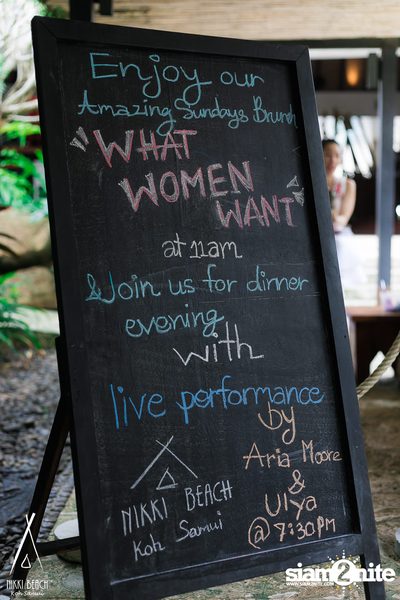 Enjoy our
Amazing Sundays Brunch
"WHAT
WOMEN
WANT"
at 11am
& Join us for dinner
evening
with
live performance
by
Aria Moore
&
Ulya
@ 7:30PM
NIKKI BEACH
Koh Samui
NIKKI BEACH
Koh Samui
siam2nite
WWW.SIAM2NITE.COM